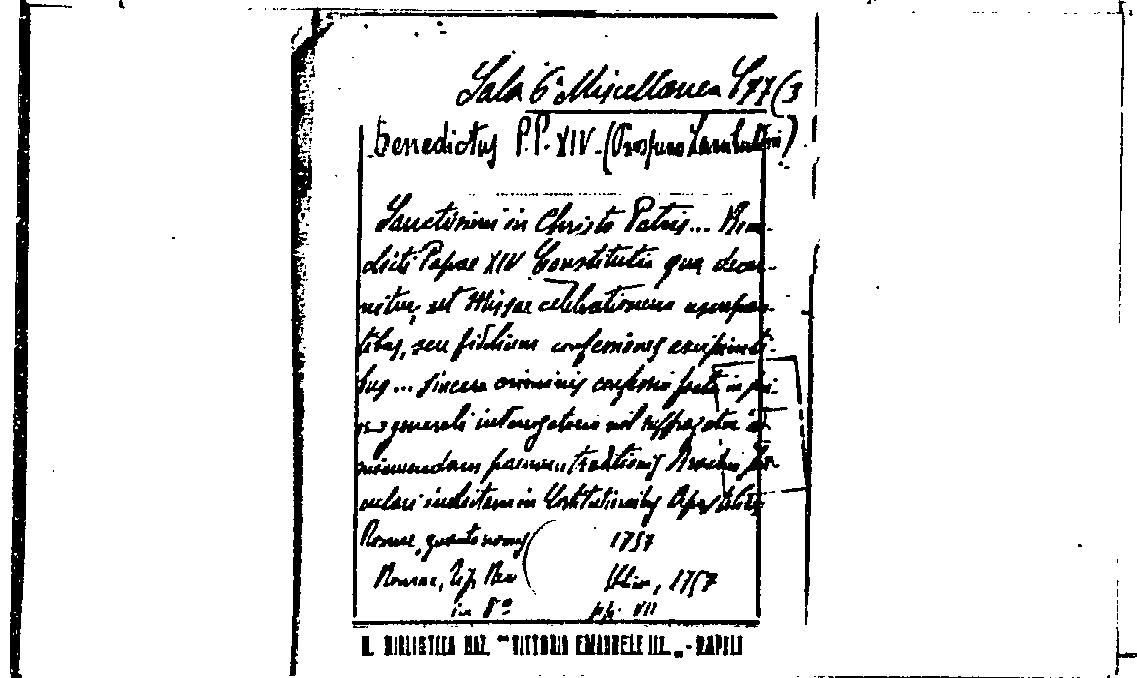 Sala 6 Miscellanea 477(3
Benedictus P.P. XIV. (Prospero Lambertini)
Sanctissimi in Christo Patris... Bene-
dicti Papae XIV Constitutio qua decer-
nitur, ut Missae celebrationem usurpan-
tibus, seu fidelium confessiones excipienti-
bus... sincera criminis confessio facta in
generali interrogatorio nil suffragetur
poenam traditionis Brachio
culari indictam in Constitutionibus Apostolicis
Romae, quarto nonas 1757
Romae, Tip. Rev 1757
in 8° pp. VII
R. BIBLIOTECA NAZ. "VITTORIO EMANUELE III" - NAPOLI